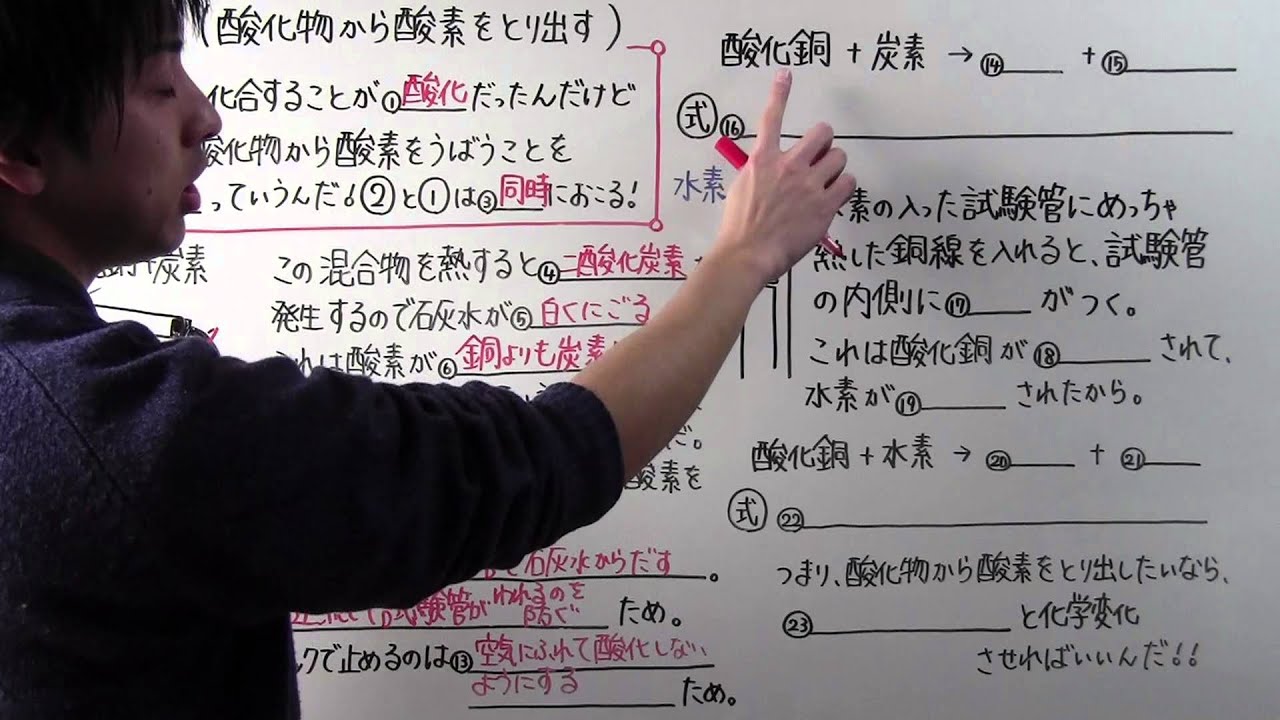 (酸化物から酸素をとり出す)
化合することが①酸化だったんだけど
酸化物から酸素をうばうことを
っていうんだ!②と①は③同時におこる!
炭素
この混合物を熱すると④二酸化炭素
発生するので石灰水が⑤白くにごる
これは酸素が⑥銅よりも炭素
だ。
酸素を
石灰水からだす。
試験管がわれるのを防ぐため。
クで止めるのは⑬空気にふれて酸化しないようにするため。
酸化銅 + 炭素 → ⑭ + ⑮
式 ⑯
水素
素の入った試験管にめっちゃ
熱した銅線を入れると、試験管
の内側に⑰がつく。
これは酸化銅が⑱されて、
水素が⑲されたから。
酸化銅 + 水素 → ⑳ + ㉑
式 ㉒
つまり、酸化物から酸素をとり出したいなら、
㉓と化学変化
させればいいんだ!!